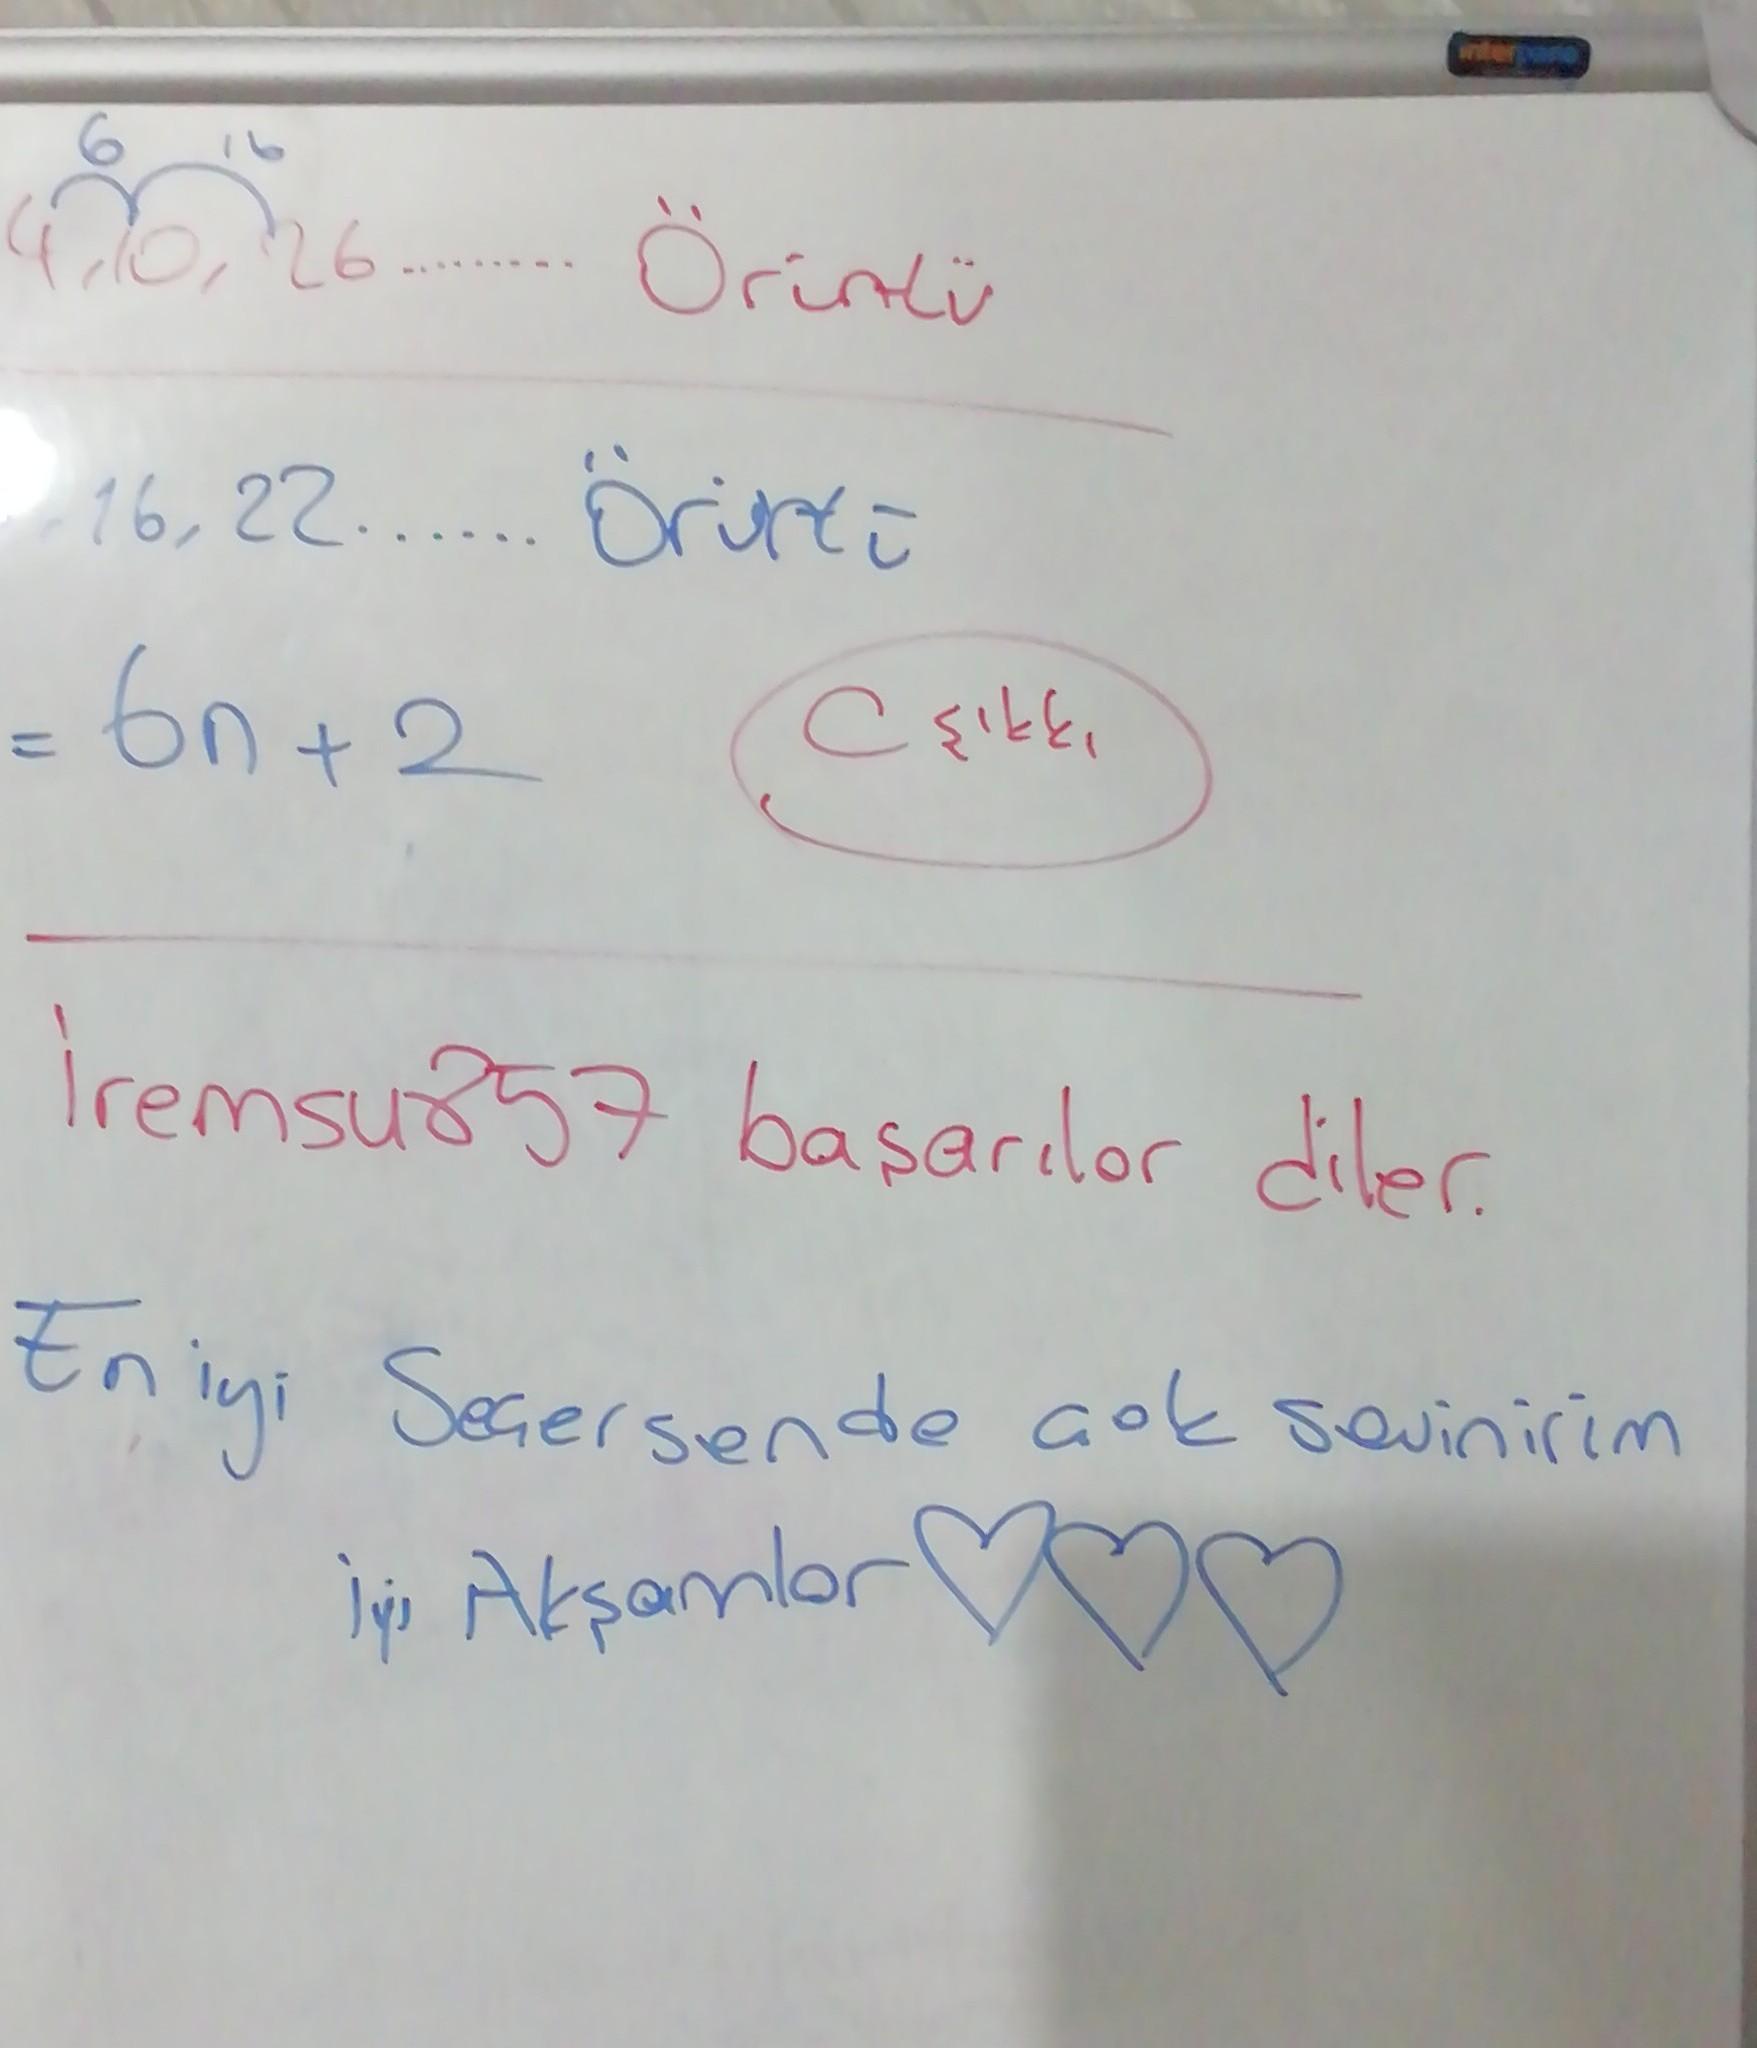 interpano
6 16
4, 10, 26......... Örüntü
16, 22....... Örüntü
= 6n + 2
C şıkkı
İremsu257 başarılar diler.
En iyi Seçersende çok sevinirim
İyi Akşamlar♡♡♡